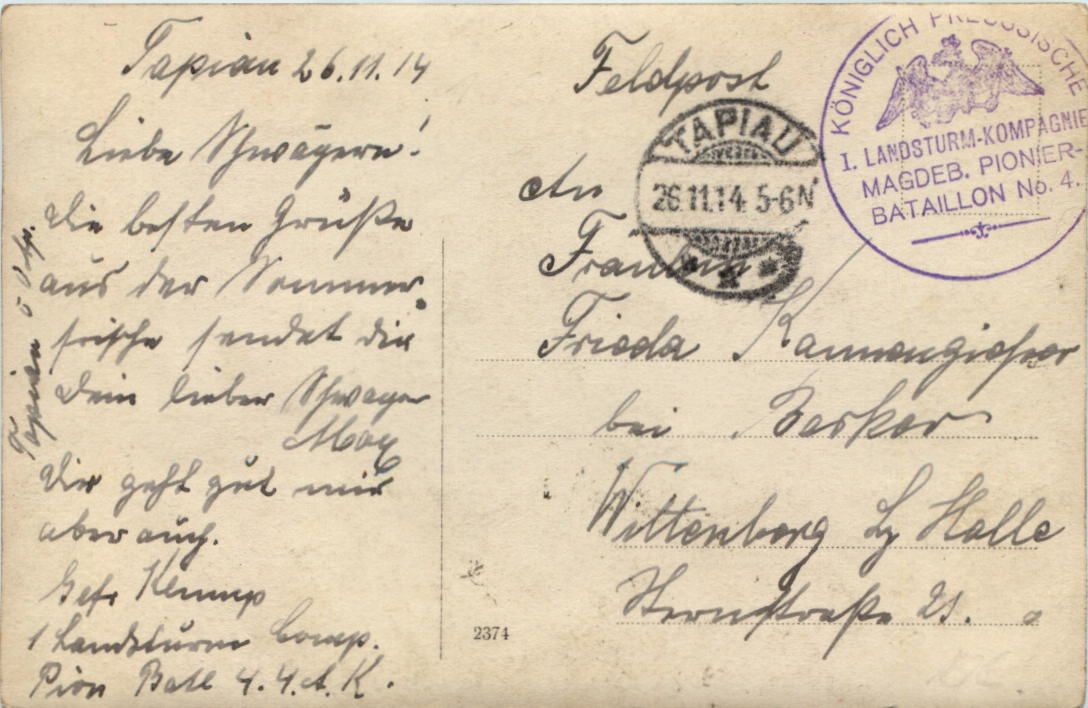 Tapiau 26.11.14
Liebe Schwägern!
Die besten Grüße
aus der Sommer-
frische sendet dir
Dein lieber Schwager
Max
Dir geht gut mir
aber auch.
Gefr Klemp
1 Landsturm Comp.
Pion Batl 4. 4. A. K.
Tapiau
Feldpost
TAPIAU
26.11.14. 5-6N
KÖNIGLICH PREUSSISCHE
I. LANDSTURM-KOMPAGNIE
MAGDEB. PIONIER-
BATAILLON No. 4.
An
Fräulein
Frieda Kannengießer
bei Becker
Wittenberg Bz Halle
Sternstraße 21.
2374